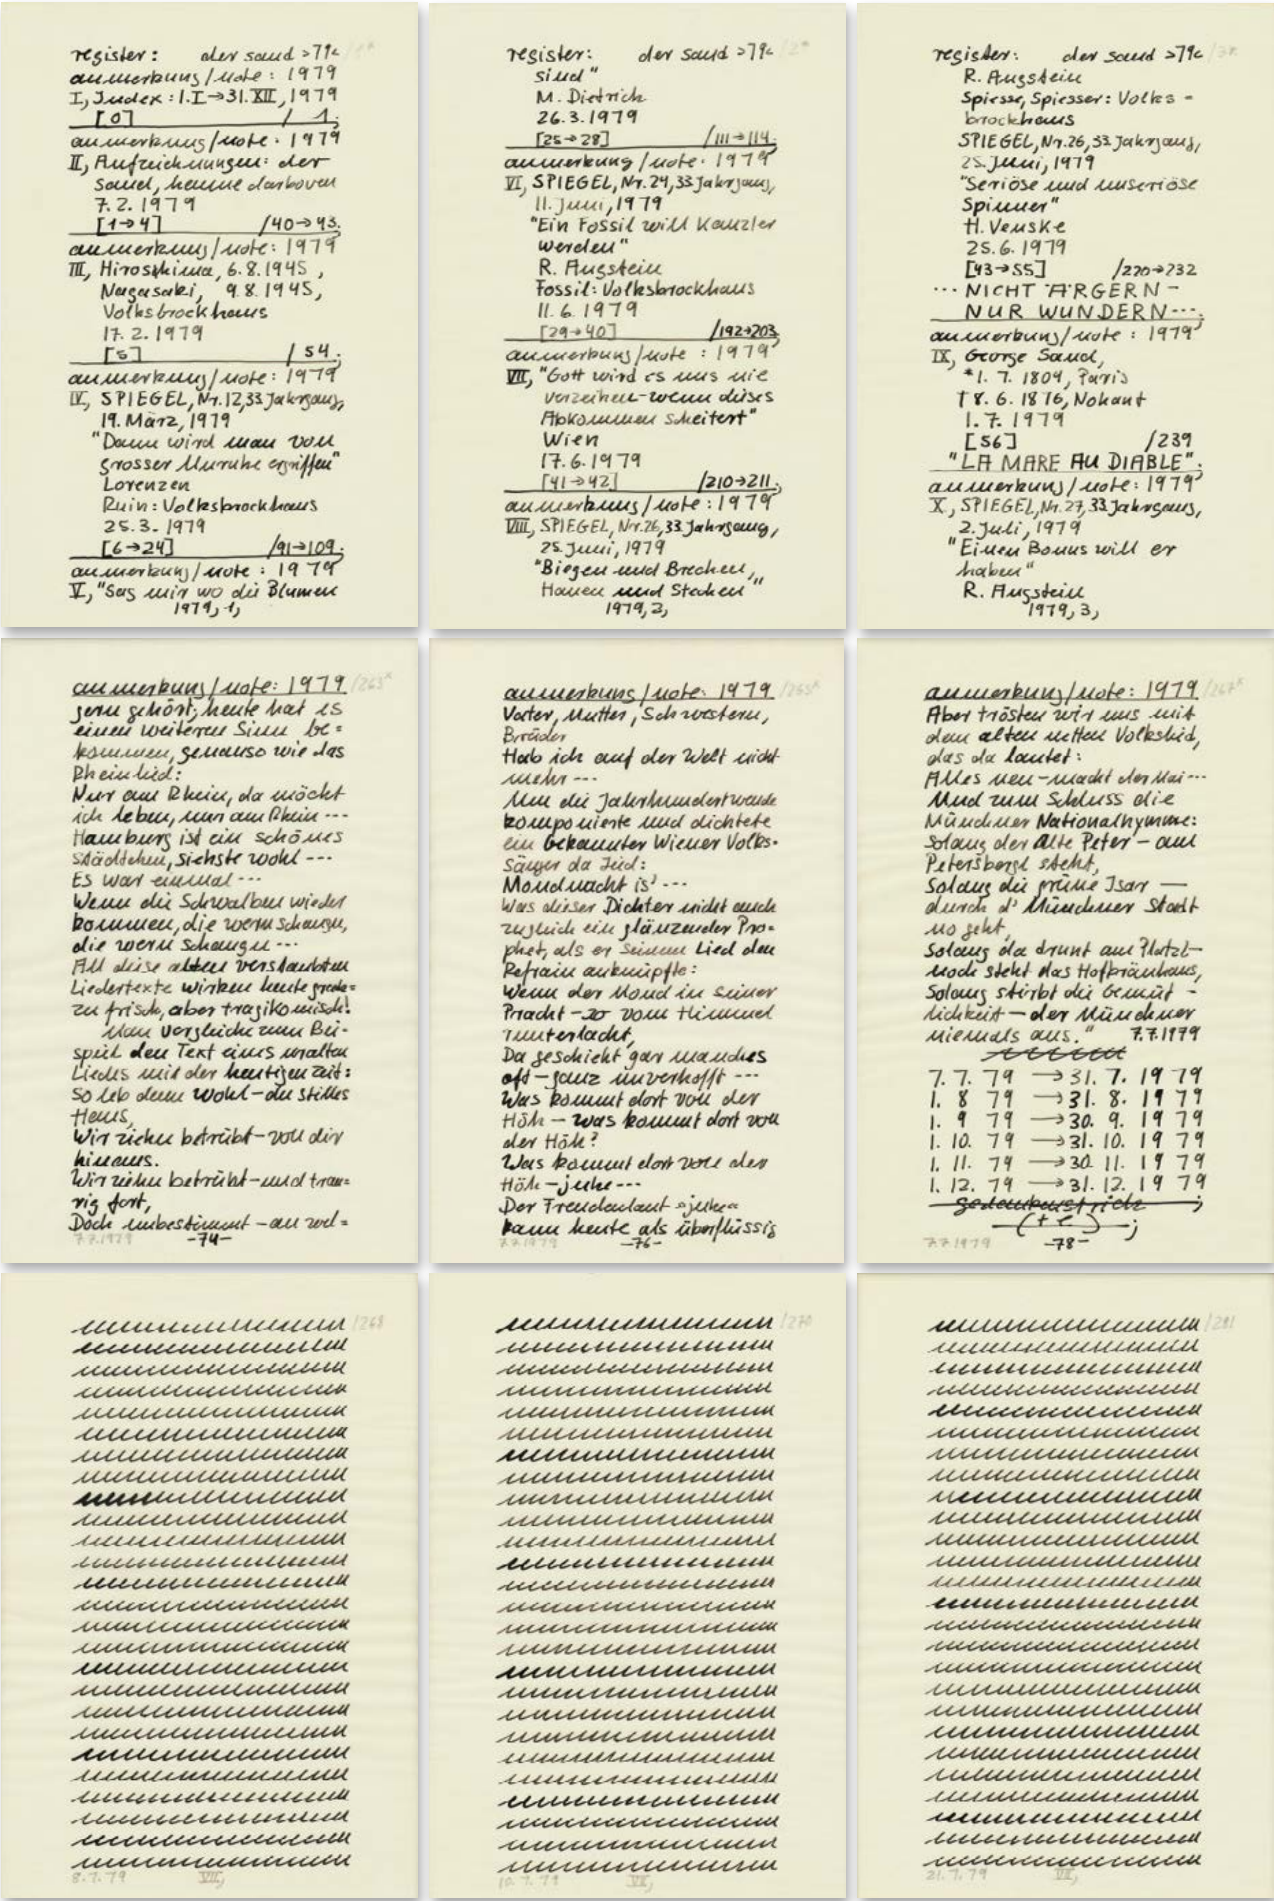 register: der sand >79< /1*
anmerkung/note: 1979
I, Index: 1.I→31.XII, 1979
[0] / 1;
anmerkung/note: 1979
II, Aufzeichnungen: der
sand, hanne darboven
7.2.1979
[1→4] /40→43;
anmerkung/note: 1979
III, Hiroshima, 6.8.1945,
Nagasaki, 9.8.1945,
Volksbrockhaus
17.2.1979
[5] / 54;
anmerkung/note: 1979
IV, SPIEGEL, Nr.12, 33 Jahrgang,
19. März, 1979
"Dann wird man von
grosser Unruhe ergriffen"
Lorenzen
Ruin: Volksbrockhaus
25.3.1979
[6→24] /91→109;
anmerkung/note: 1979
V, "Sag mir wo die Blumen
1979, 1,
register: der sand >79< /2*
sind"
M. Dietrich
26.3.1979
[25→28] /111→114;
anmerkung/note: 1979
VI, SPIEGEL, Nr.24, 33 Jahrgang,
11. Juni, 1979
"Ein Fossil will Kanzler
werden"
R. Augstein
Fossil: Volksbrockhaus
11.6.1979
[29→40] /192→203;
anmerkung/note: 1979
VII, "Gott wird es uns nie
verzeihen-wenn dieses
Abkommen scheitert"
Wien
17.6.1979
[41→42] /210→211;
anmerkung/note: 1979
VIII, SPIEGEL, Nr.26, 33 Jahrgang,
25. Juni, 1979
"Biegen und Brechen,
Hauen und Stechen"
1979, 2,
register: der sand >79< /3*
R. Augstein
Spiesse, Spiesser: Volks-
brockhaus
SPIEGEL, Nr.26, 33 Jahrgang,
25. Juni, 1979
"Seriöse und unseriöse
Spinner"
H. Venske
25.6.1979
[43→55] /220→232
... NICHT ÄRGERN -
NUR WUNDERN...;
anmerkung/note: 1979
IX, George Sand,
*1.7.1804, Paris
†8.6.1876, Nohant
1.7.1979
[56] /239
"LA MARE AU DIABLE";
anmerkung/note: 1979
X, SPIEGEL, Nr.27, 33 Jahrgang,
2. Juli, 1979
"Einen Bonus will er
haben"
R. Augstein
1979, 3,
anmerkung/note: 1979 /263*
gern gehört, heute hat es
einen weiteren Sinn be=
kommen, genauso wie das
Rheinlied:
Nur am Rhein, da möcht
ich leben, nur am Rhein ---
Hamburg ist ein schönes
Städtchen, siehste wohl ---
Es war einmal ---
Wenn die Schwalben wieder
kommen, die wern schaugn,
die wern schaugn ---
All diese alten verstaubten
Liedertexte wirken heute gerade=
zu frisch, aber tragikomisch!
Man vergleiche zum Bei-
spiel den Text eines uralten
Liedes mit der heutigen Zeit:
So leb denn wohl - du stilles
Haus,
Wir ziehn betrübt - von dir
hinaus.
Wir ziehn betrübt - und trau=
rig fort,
Doch unbestimmt - an wel=
7.7.1979 -74-
anmerkung/note: 1979 /265*
Vater, Mutter, Schwestern,
Brüder
Hab ich auf der Welt nicht
mehr ---
Um die Jahrhundertwende
komponierte und dichtete
ein bekannter Wiener Volks-
sänger da Lied:
Mondnacht is' ---
Was dieser Dichter nicht auch
zugleich ein glänzender Pro=
phet, als er seinem Lied den
Refrain anknüpfte:
Wenn der Mond in seiner
Pracht - so vom Himmel
runterlacht,
Da geschieht gar manches
oft - ganz unverhofft ---
Was kommt dort von der
Höh - was kommt dort von
der Höh?
Was kommt dort von der
Höh - juhe ---
Der Freudenlaut »juhe«
kann heute als überflüssig
7.7.1979 -76-
anmerkung/note: 1979 /267*
Aber trösten wir uns mit
dem alten netten Volkslied,
das da lautet:
Alles neu - macht der Mai ---
Und zum Schluss die
Münchner Nationalhymne:
Solang der Alte Peter - am
Petersbergl steht,
Solang die grüne Isar —
durch d' Münchner Stadt
no geht,
Solang da drunt am Platzl-
noch steht das Hofbräuhaus,
Solang stirbt die Gemüt -
lichkeit - der Münchner
niemals aus." 7.7.1979
7.7. 79 → 31. 7. 1979
1. 8 79 → 31. 8. 1979
1. 9 79 → 30. 9. 1979
1. 10. 79 → 31. 10. 1979
1. 11. 79 → 30. 11. 1979
1. 12. 79 → 31. 12. 1979
gedankenstrich ;
(+ e) ;
7.7.1979 -78-
/268
8.7.79 VII,
/270
10.7.79 VII,
/281
21.7.79 VII,